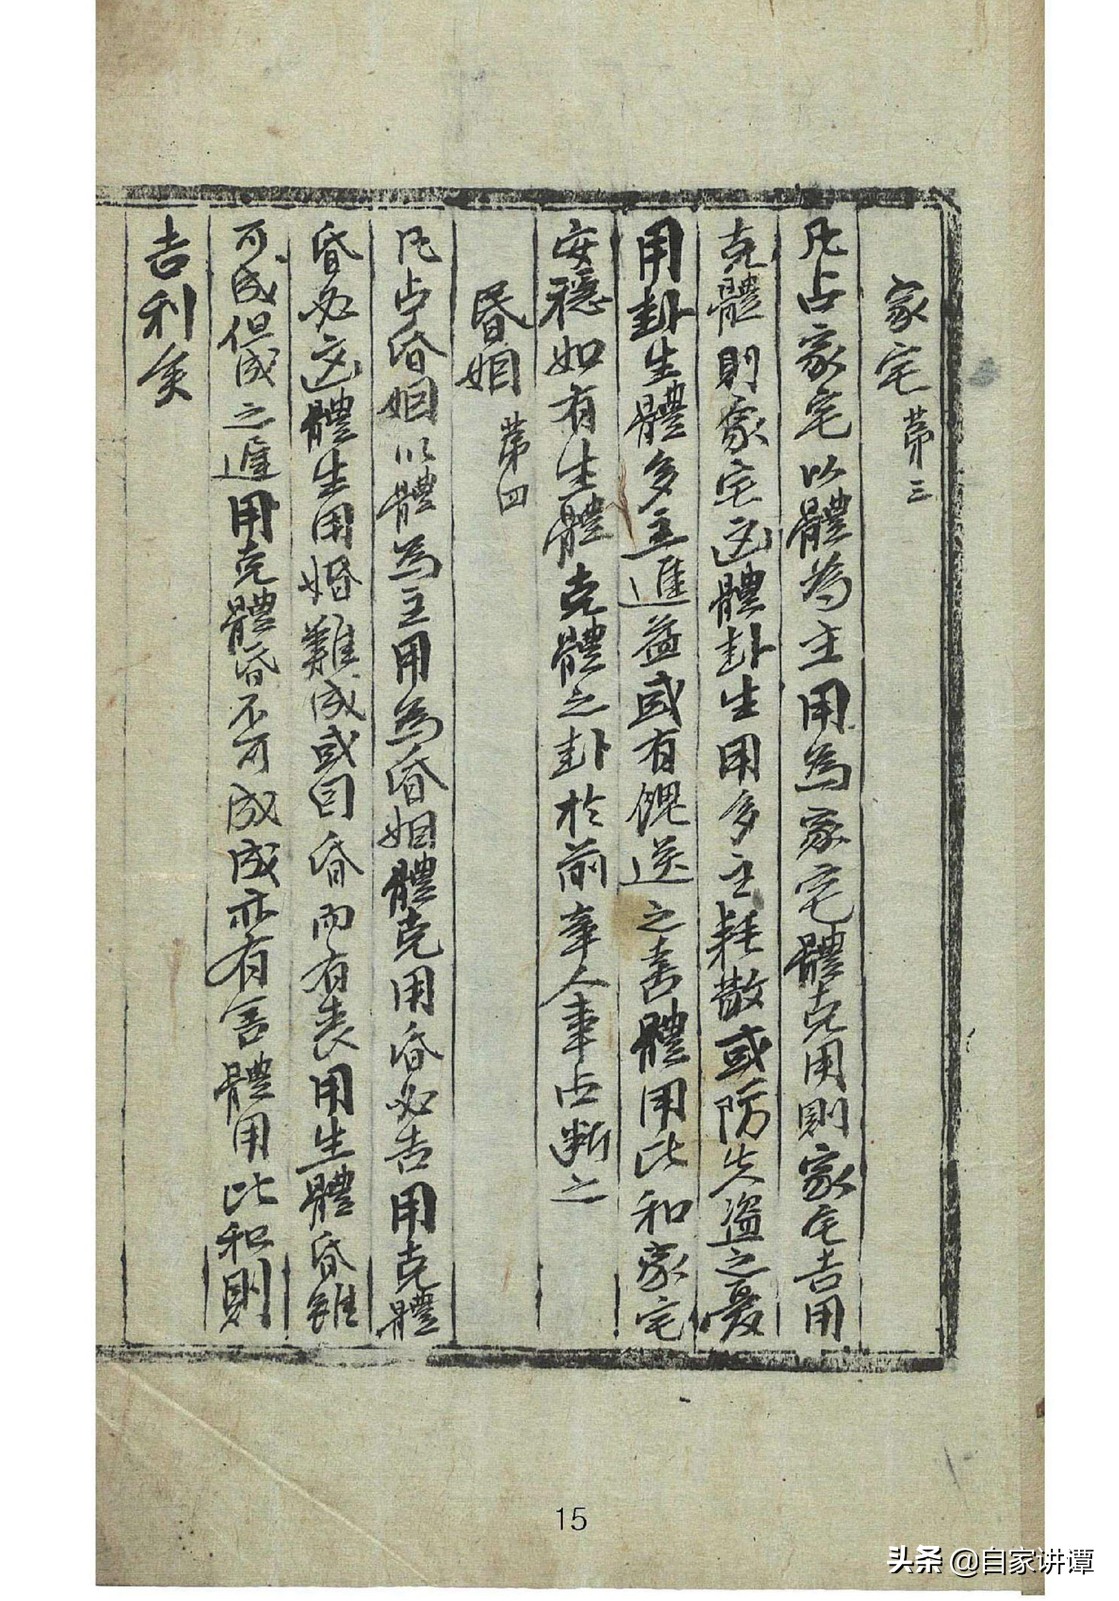 家宅 第三
凡占家宅以體為主用為家宅體克用則家宅吉用
克體則家宅凶體卦生用多主耗散或防失盜之憂
用卦生體多主進益或有餽送之喜體用比和家宅
安穩如有生體克體之卦於前章人事占斷之
昏姻 第四
凡占昏姻以體為主用為昏姻體克用昏必吉用克體
昏必凶體生用婚難成或因昏而有喪用生體昏雖
可成但成之遲用克體昏不可成成亦有害體用比和則
吉利矣
15
头条 @自家讲谭